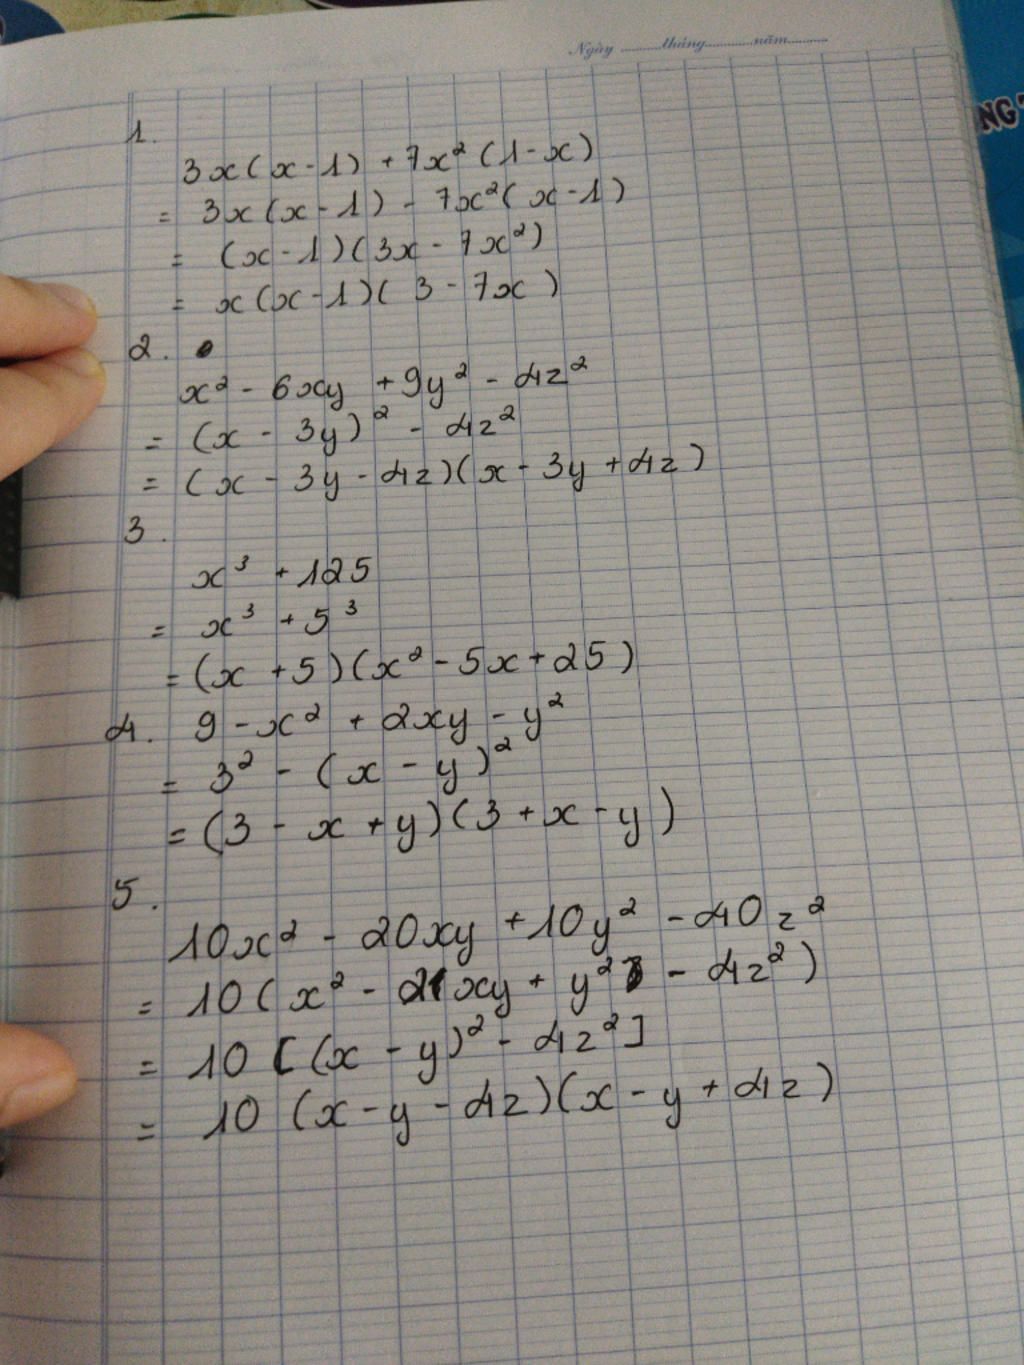 Ngày ........tháng..........năm........
NG
1.
3x(x-1) + 7x² (1-x)
= 3x(x-1) - 7x²(x-1)
= (x-1)(3x - 7x²)
= x(x-1)(3 - 7x)
2.
x² - 6xy + 9y² - 4z²
= (x - 3y)² - 4z²
= (x - 3y - 4z)(x - 3y + 4z)
3.
x³ + 125
= x³ + 5³
= (x + 5)(x² - 5x + 25)
4. 9 - x² + 2xy - y²
= 3² - (x - y)²
= (3 - x + y)(3 + x - y)
5.
10x² - 20xy + 10y² - 40z²
= 10(x² - 2xy + y² - 4z²)
= 10[(x - y)² - 4z²]
= 10 (x - y - 4z)(x - y + 4z)